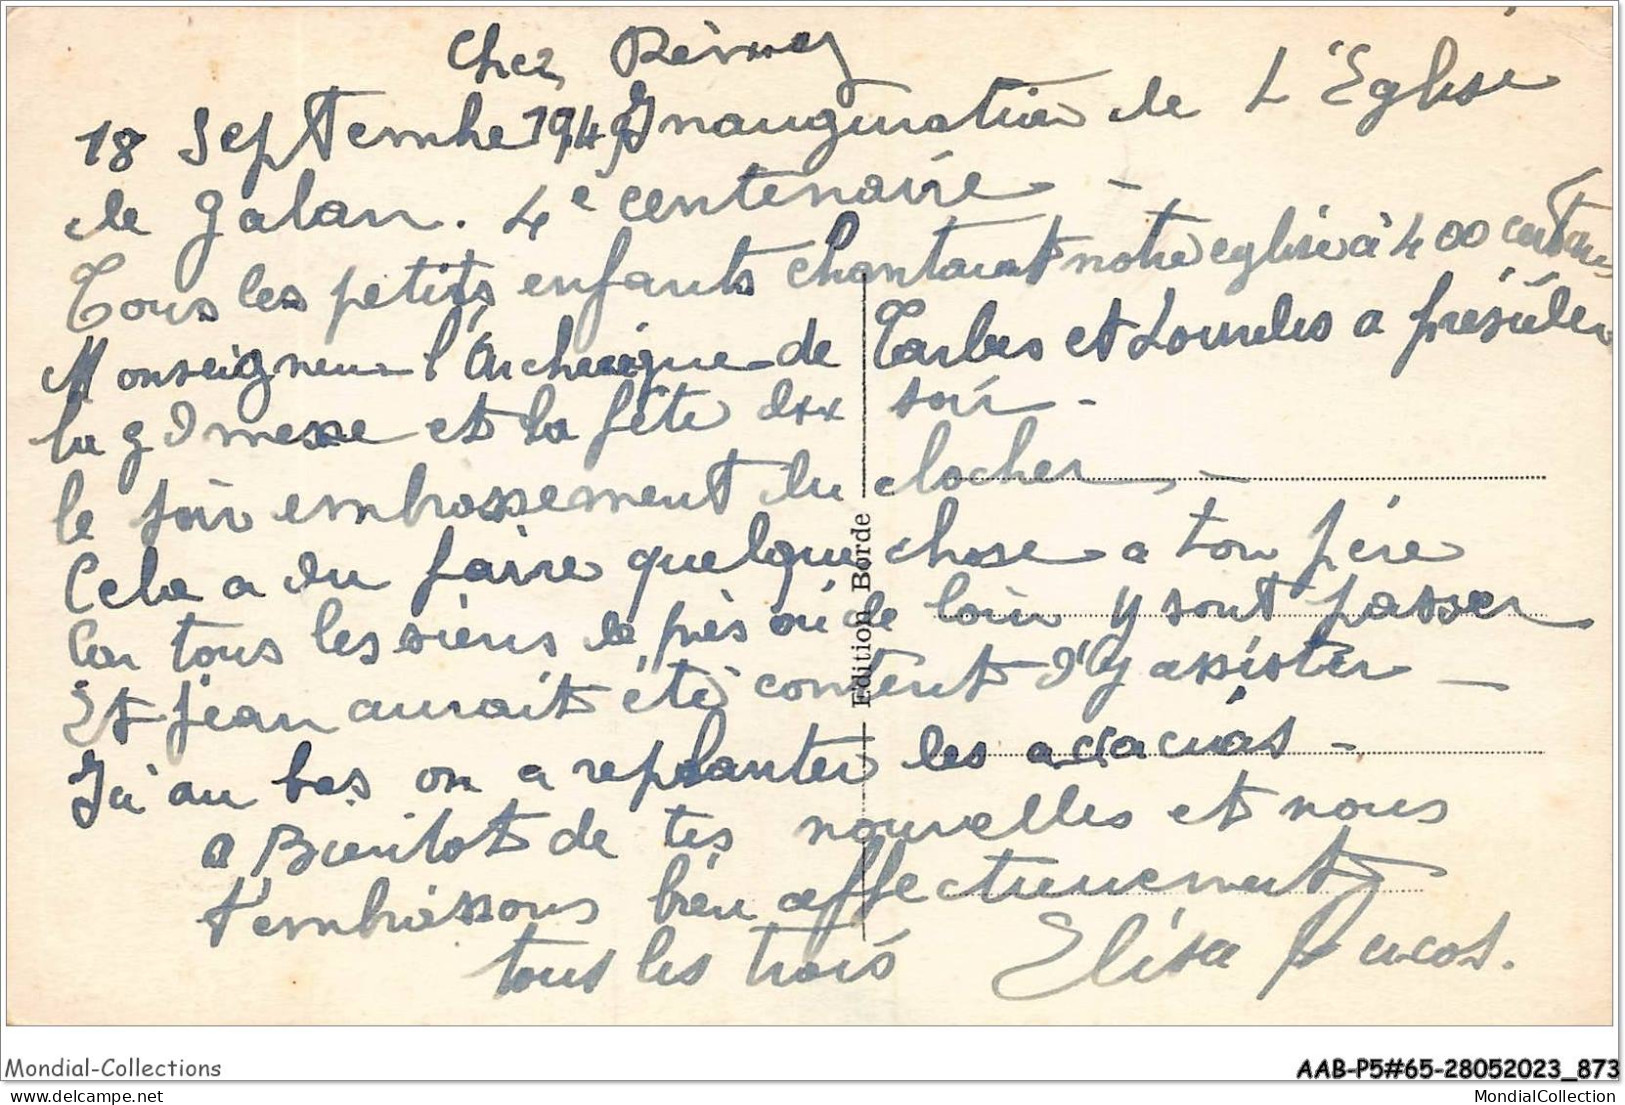 Chez
18 Septembre 1949 Inauguration de L'Eglise
de Galan. 4e centenaire -
Tous les petits enfants chantaient notre eglise à 400
Monseigneur l'Archevêque de Tarbes et Lourdes a présider
la gd messe et la fête du soir -
le soir embrassement du clocher -
Cela a du faire quelque chose a ton père
Car tous les siens de près ou de loin y sont passer
Et Jean aurait été content d'y assister -
Ici au bas on a replanter les accacias -
a Bientot de tes nouvelles et nous
t'embrassons bien affectueusement
tous les trois Elisa
Edition Borde
Mondial-Collections
AAB-P5#65-28052023_873
MondialCollection